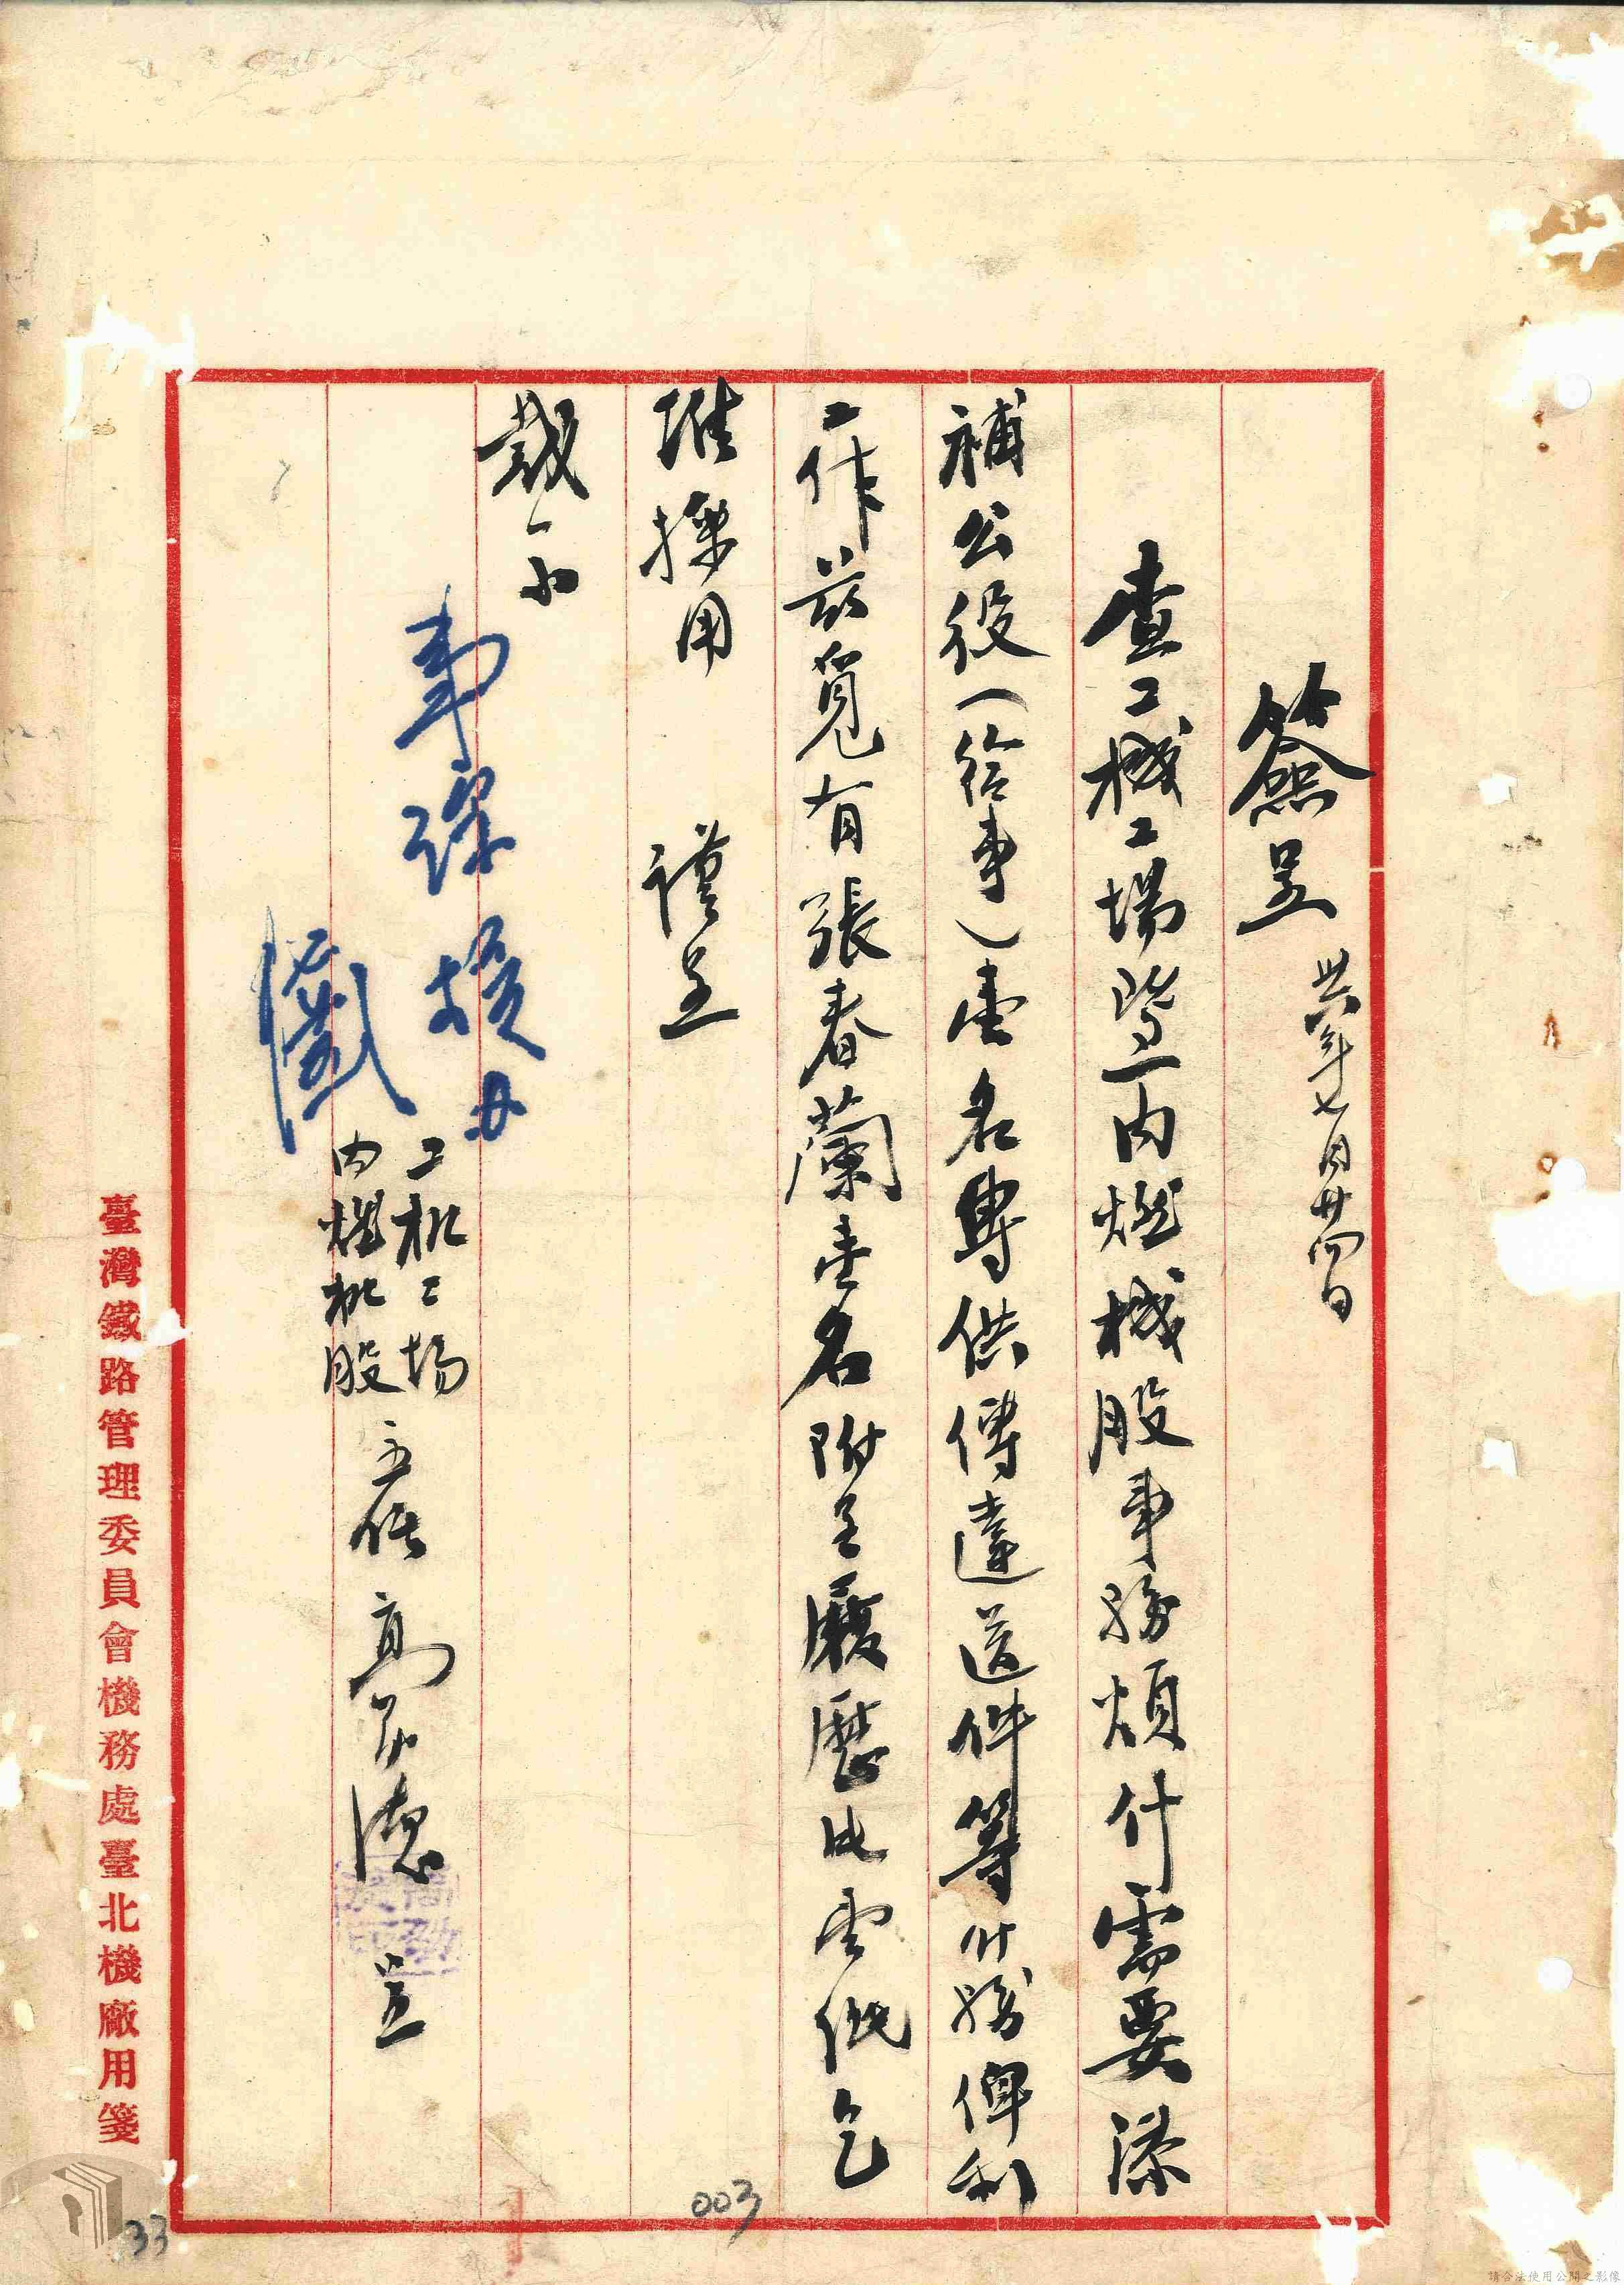 簽呈 卅六年七月廿四日
查工機工場暨內燃機股事務煩什需要添
補公役(給事)壹名專供傳達送件等什務俾利
工作茲覓有張春蘭壹名附呈履歷書壹紙乞
准採用 謹呈
裁示
工机工場
內燃机股
主任 高 德 呈
臺灣鐵路管理委員會機務處臺北機廠用箋
003
33
請合法使用公開之影像